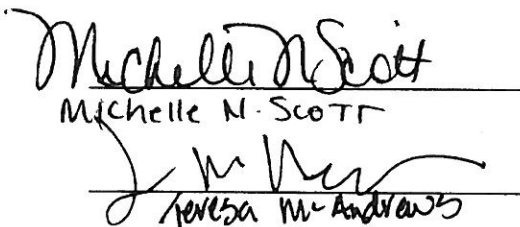 Michelle N Scott
Michelle N. Scott
Teresa McAndrews